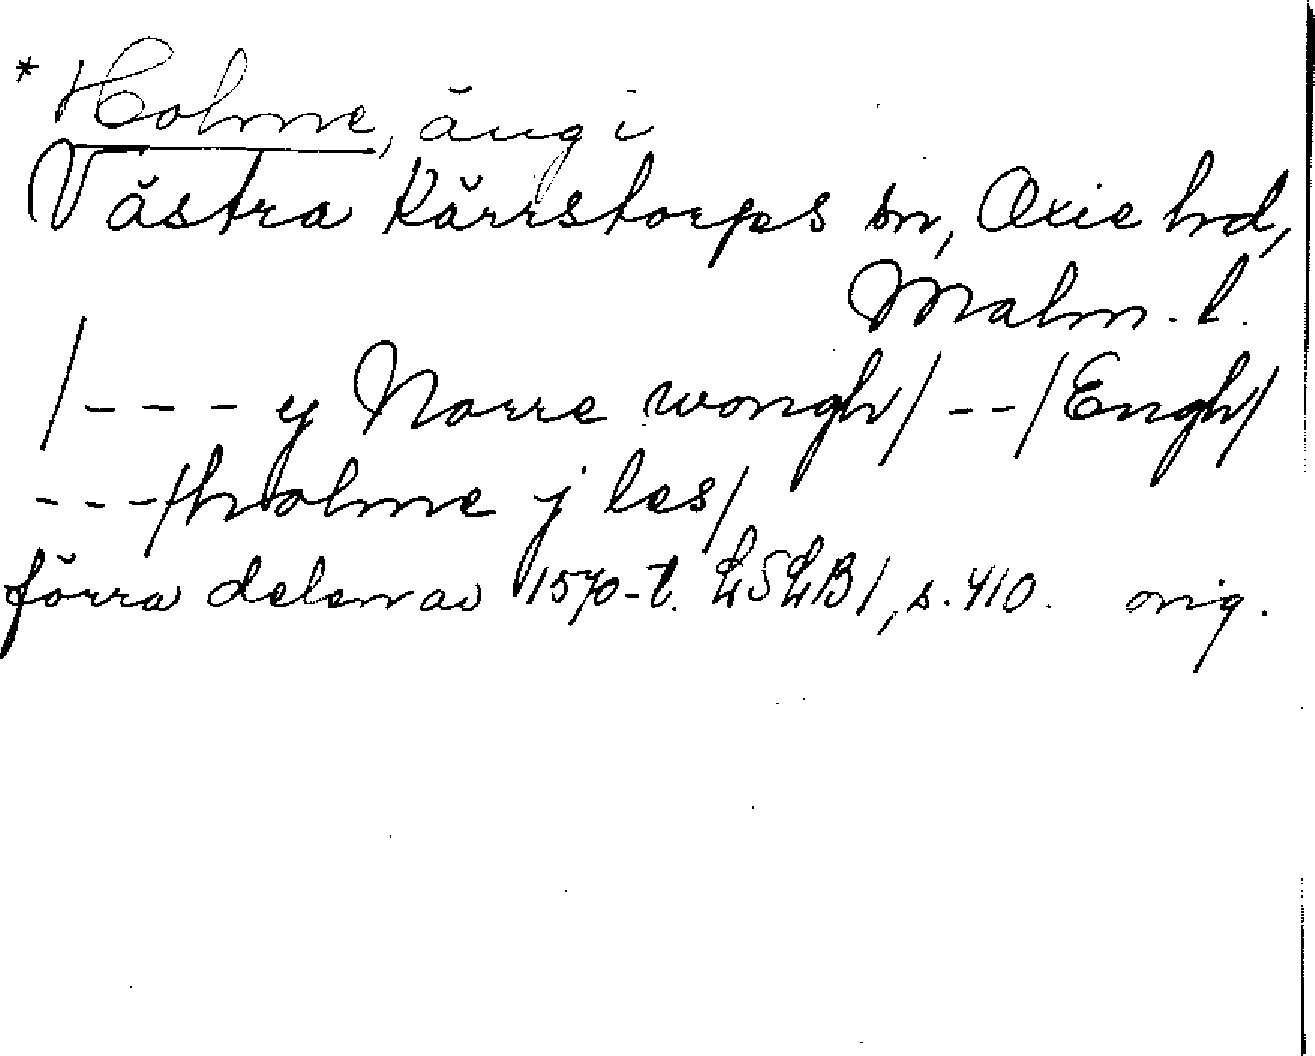 * Holme, äng i
Västra Kärrstorps sn, Oxie hd,
Malm. l.
/--- y Norre wongh/--/Engh/
---/holme j les/
förra delen av 1570-t. LSLB/, s. 410. orig.